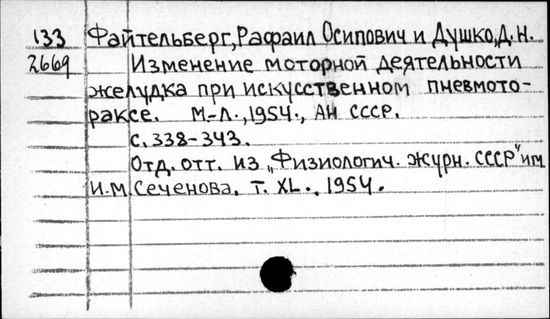 133 Файтельберг, Рафаил Осипович и Душко, Д. Н.
2669 Изменение моторной деятельности
желудка при искусственном пневмото-
раксе. М-Л., 1954., АН СССР.
с. 338-343.
Отд. отт. из „Физиологич. журн. СССР" им
И.М. Сеченова. Т. XL., 1954.